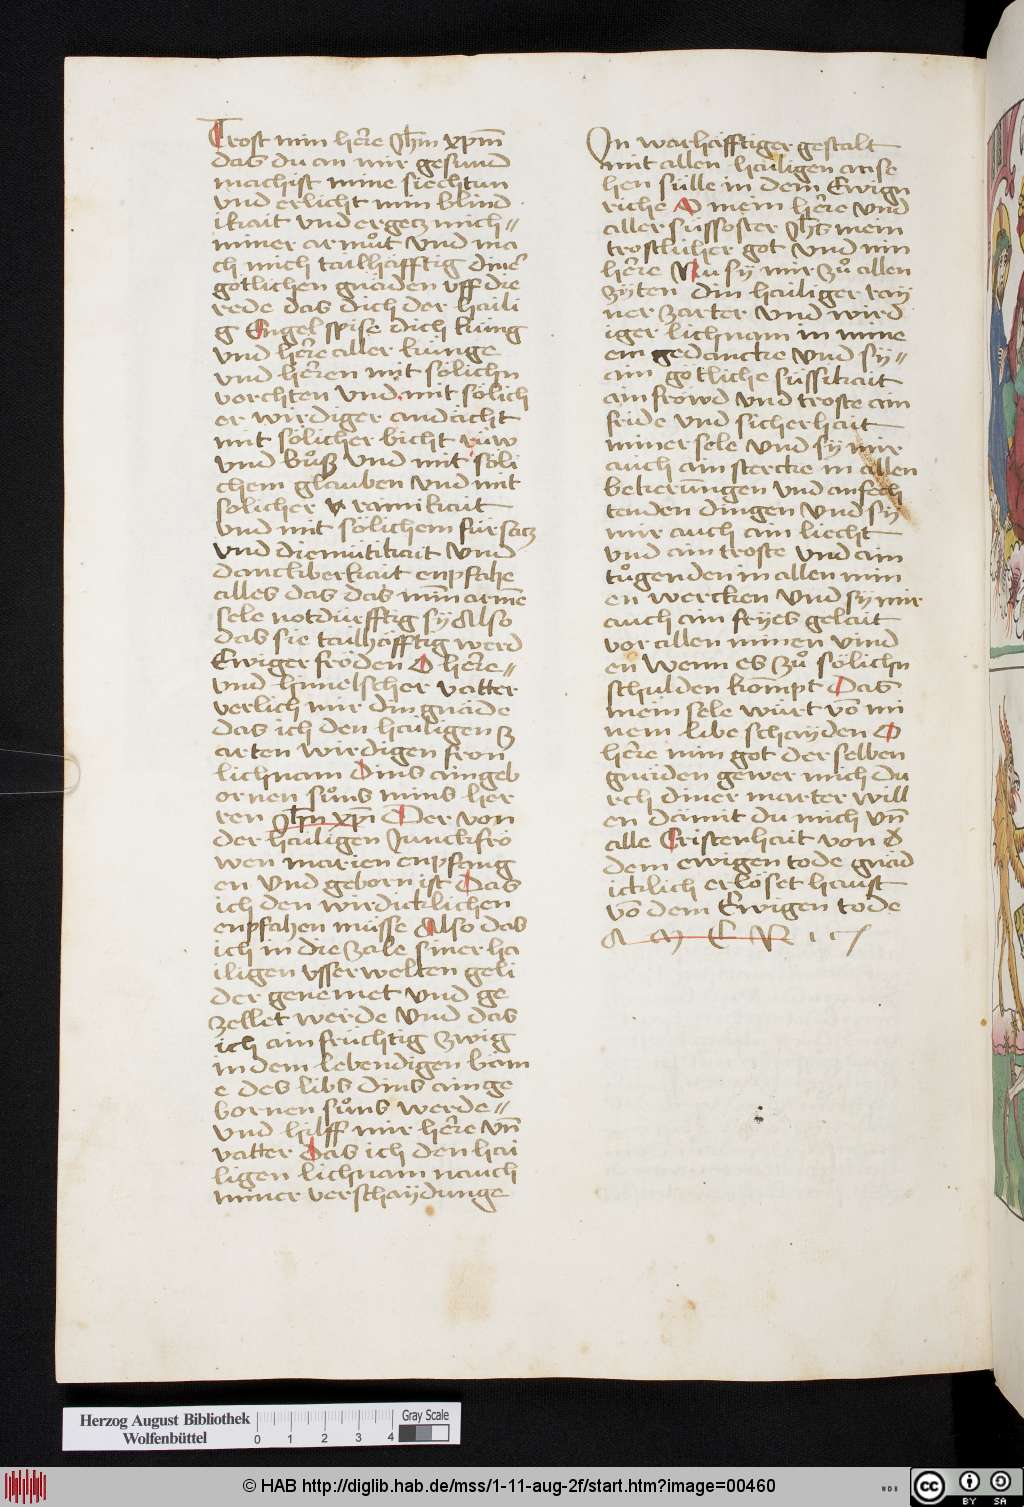 Trost min herre Jhm xpm
das du an mir gesund
machist mine siechtun
vnd erlicht min blind
ikait vnd ergetz mich〃
miner armůt vnd ma
ch mich tailhäfftig diner
götlichen gnäden vff die
rede das dich der haili
g Engel spise dich küng
vnd herre aller künge
vnd herren mit sölichn
vorchten vnd mit sölich
er wirdiger andächt
mit sölicher bicht rüw
vnd bůß vnd mit söli
chem glauben vnd mit
solicher rainikait
vnd mit sölichem fürsatz
vnd diemütikait vnd
danckberkait enpfahe
alles das das minr arme
sele notdürfftig sÿ Also
das sie tailhäfftig werd
Ewiger fröden O herre〃
vnd himelscher vatter
verlich mir din gnäde
das ich den hailigen z
arten wirdigen fron
lichnam dins aingeb
ornen sůns mins her
ren Jhm xpi Der von
der hailigen Junckfrö
wen marien enpfang
en vnd geborn ist Das
ich den wirdicklichen
enpfahen müsse Also das
ich in die zale siner ha
iligen vsserwelten geli
der genemet vnd ge
zellet werde vnd das
ich ain früchtig zwig
in dem lebendigen bäm
e des libs dins ainge
bornen sůns werde〃
vnd hilff mir herre vn̄
vatter Das ich den hai
ligen lichnam nauch
miner verschaÿdunge
In warhäfftiger gestalt
mit allen hailigen anse
hen sülle in dem Ewign
riche O mein herre vnd
aller süssoster Jhs mein
trostlicher got vnd min
herre Nu sÿ mir zů allen
zÿten din hailiger raÿ
ner zarter vnd wird
iger lichnam in mine
em gedancke vnd sÿ〃
ain götliche süssikait
ain fröwd vnd troste ain
fride vnd sicherhait
miner sele vnd sÿ mir
auch ain stercke in allen
bekerungen vnd anfech
tenden dingen vnd sÿ
mir auch ain liecht
vnd ain troste vnd ain
tůgenden in allen min
en wercken vnd sy mir
auch ain fryes gelait
vor allen minen vind
en wenn es zů sölichn
schulden kompt Das
mein sele würt vō mi
nem libe schaÿden O
herre min got der selben
gnäden gewer mich du
rch diner marter will
en dämit du mich vn̄
alle Cristenhait von
dem ewigen tode gnäd
icklich erlöset haust
vō dem Ewigen tode
A M E N
Herzog August Bibliothek
Wolfenbüttel
0 1 2 3 4
Gray Scale
© HAB http://diglib.hab.de/mss/1-11-aug-2f/start.htm?image=00460
WDB
cc BY SA